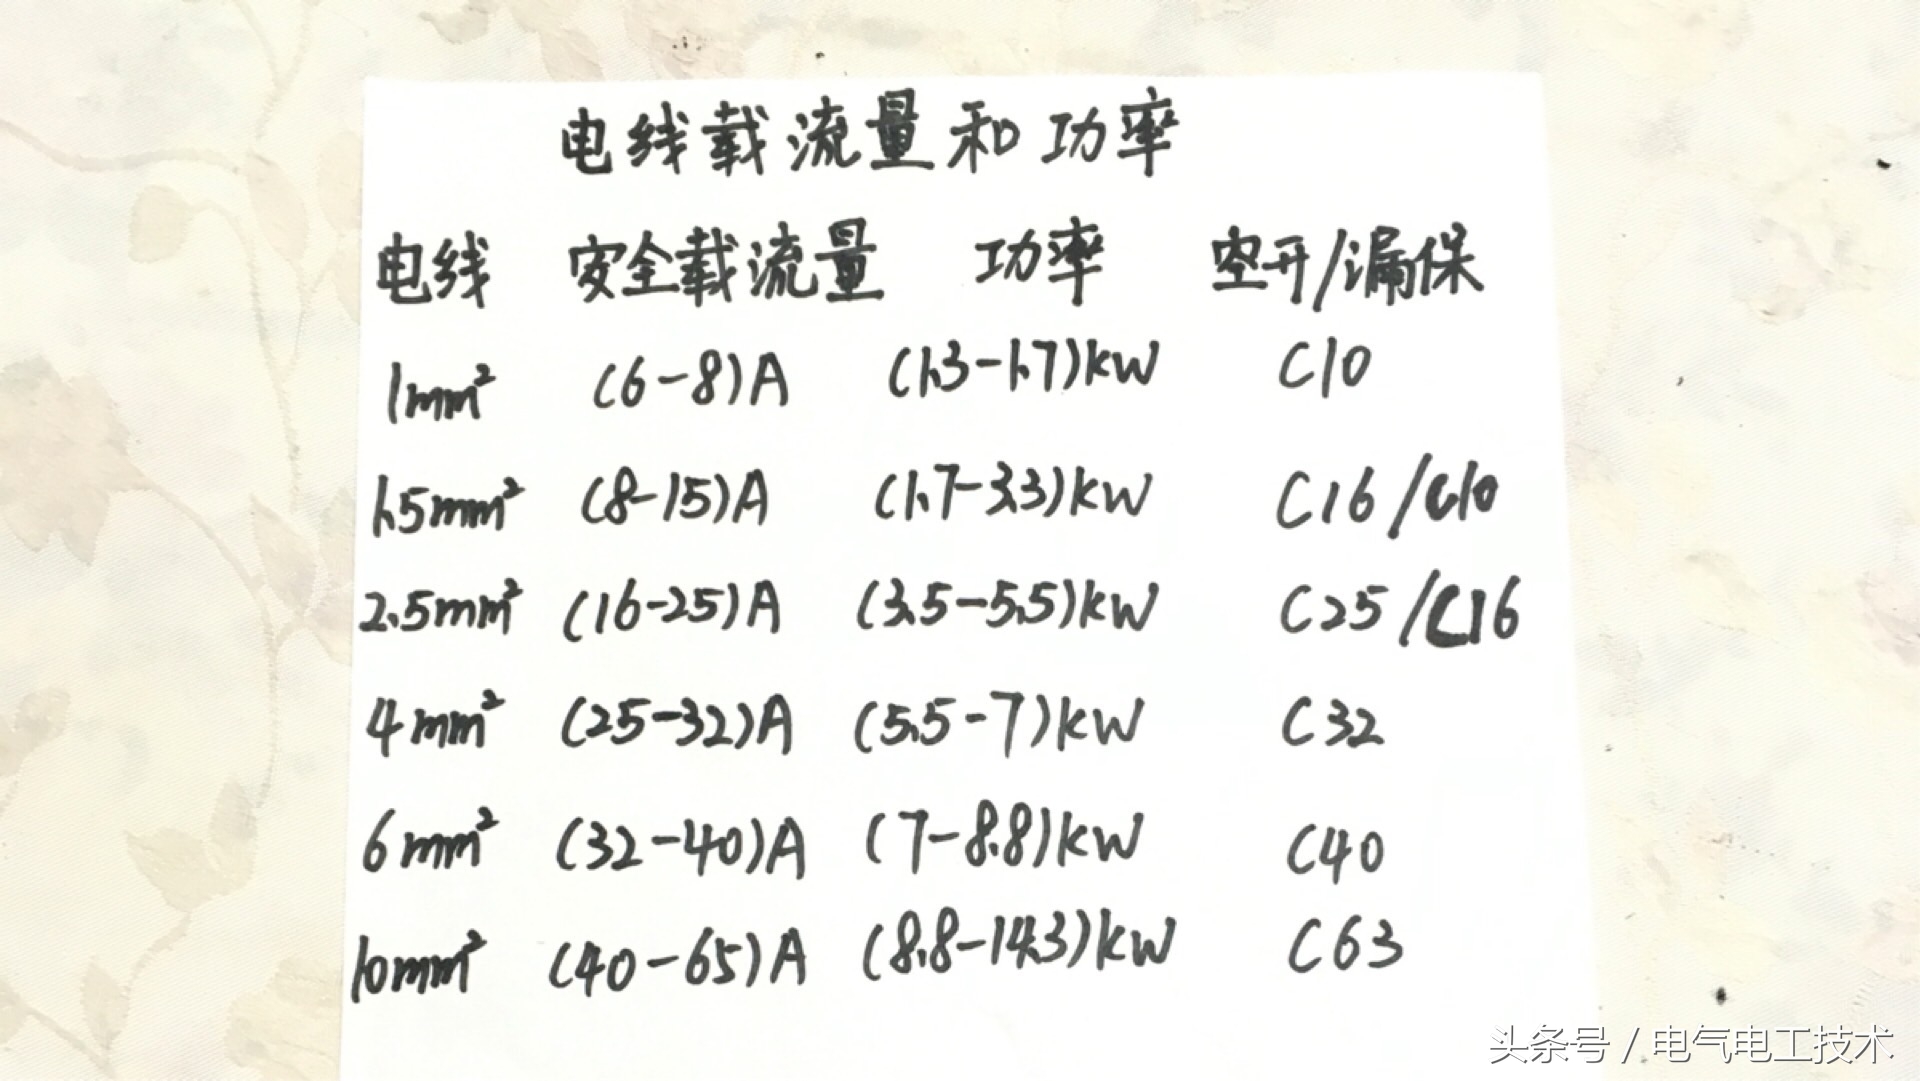 电线载流量和功率
电线 安全载流量 功率 空开/漏保
1mm² (6-8)A (1.3-1.7)kW C10
1.5mm² (8-15)A (1.7-3.3)kW C16/C10
2.5mm² (16-25)A (3.5-5.5)kW C25/C16
4mm² (25-32)A (5.5-7)kW C32
6mm² (32-40)A (7-8.8)kW C40
10mm² (40-65)A (8.8-14.3)kW C63
头条号/电气电工技术